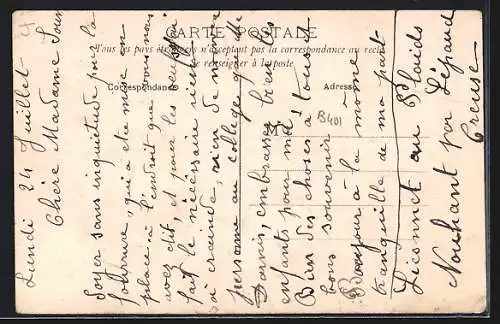 CARTE POSTALE
Tous les pays étrangers n'acceptant pas la correspondance au recto
se renseigner à la poste
Correspondance
Adresse
B401
M
Lundi 24 Juillet
Chère Madame
Soyez sans inquiétude pour la
qui a été mise en
place à l'endroit que vous nous
avez dit, et pour les
fait le nécessaire rien
à craindre, rien de ma
personne au collège qu'elle
embrassez bien les
enfants pour moi
Bien des choses à tous et
bons souvenirs
Bonjour à la môme
tranquille de ma part
au
Nouhant par Lépaud
Creuse